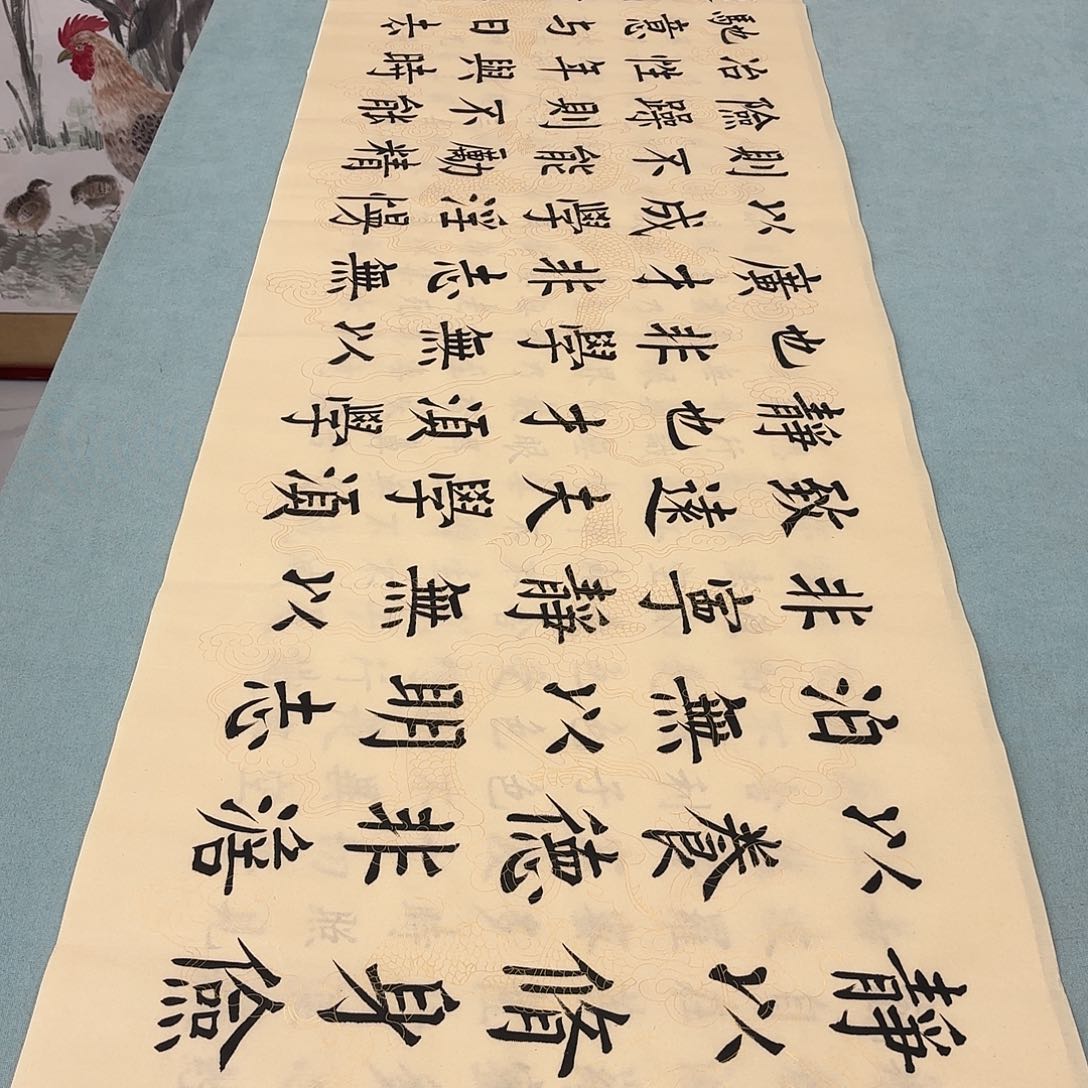 靜以脩身儉
以養德非澹
泊無以明志
非寧靜無以
致遠夫學湏
靜也才湏學
也非學無以
廣才非志無
以成學淫慢
則不能勵精
險躁則不能
冶性年與時
馳意与日去